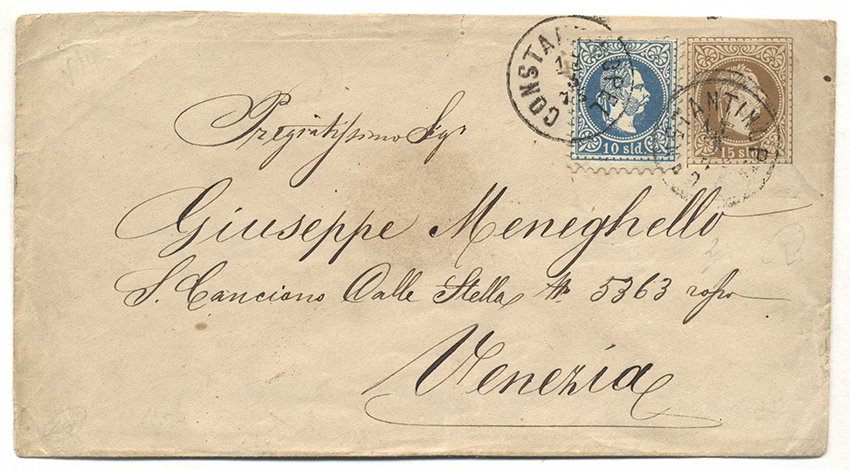 CONSTANTINOPEL
10 sld.
15 sld.
Pregiatissimo Sigr
Giuseppe Meneghello
S. Canciano Calle Stella № 5363 rosso
Venezia